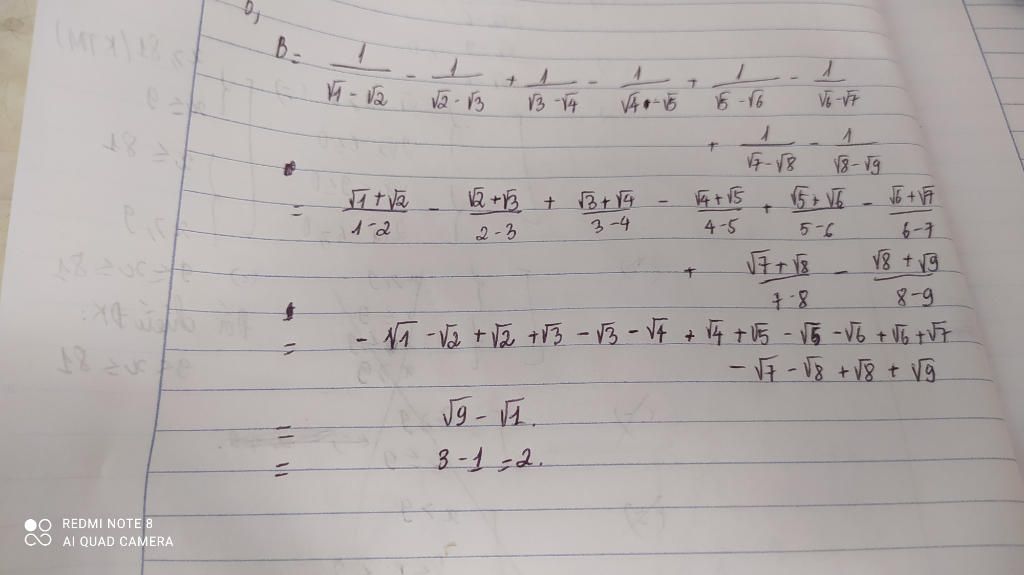 b,
B = 1/(√1 - √2) - 1/(√2 - √3) + 1/(√3 - √4) - 1/(√4 - √5) + 1/(√5 - √6) - 1/(√6 - √7)
+ 1/(√7 - √8) - 1/(√8 - √9)
= (√1 + √2)/(1 - 2) - (√2 + √3)/(2 - 3) + (√3 + √4)/(3 - 4) - (√4 + √5)/(4 - 5) + (√5 + √6)/(5 - 6) - (√6 + √7)/(6 - 7)
+ (√7 + √8)/(7 - 8) - (√8 + √9)/(8 - 9)
= - √1 - √2 + √2 + √3 - √3 - √4 + √4 + √5 - √5 - √6 + √6 + √7
- √7 - √8 + √8 + √9
= √9 - √1.
= 3 - 1 = 2.
REDMI NOTE 8
AI QUAD CAMERA